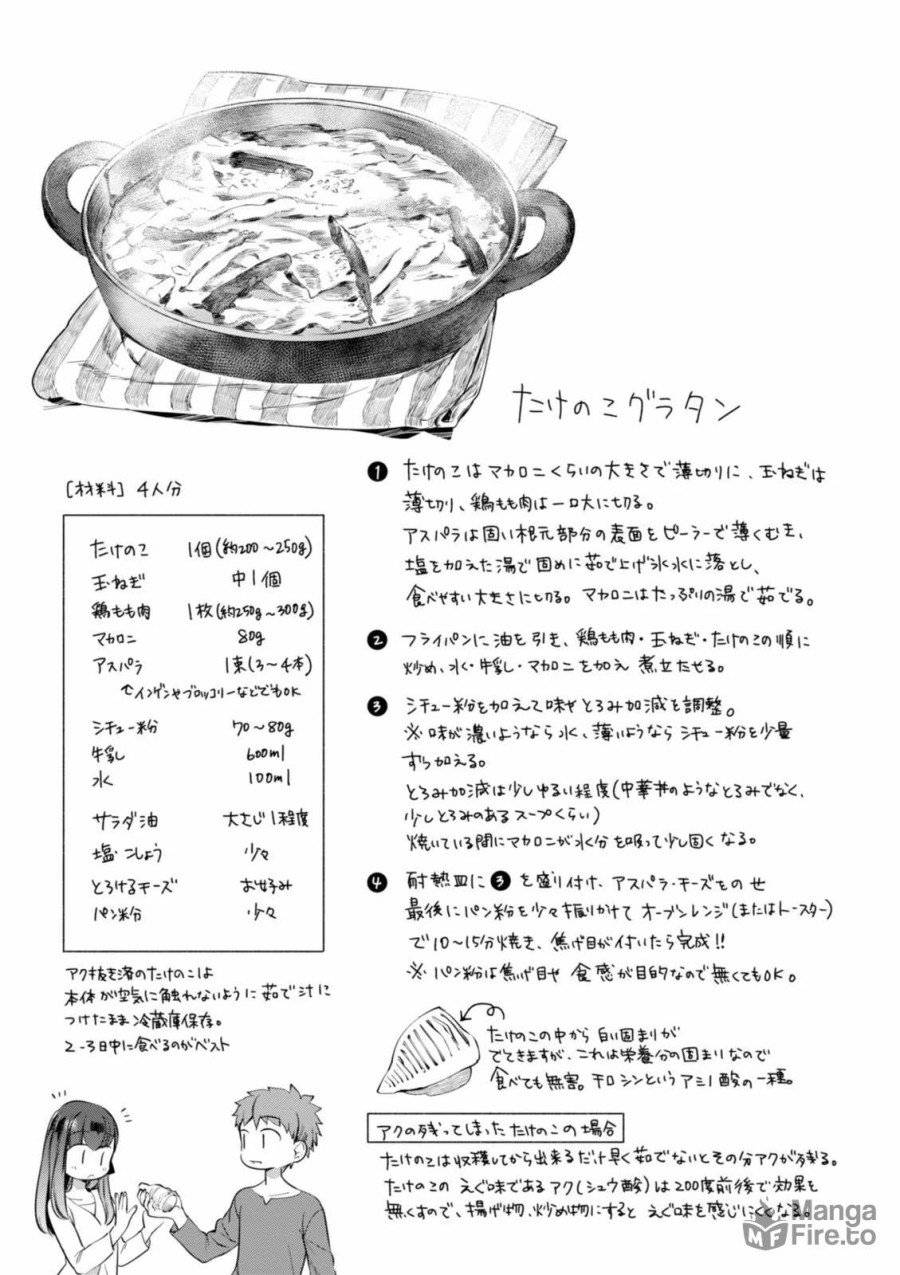 たけのこグラタン
[材料] 4人分
たけのこ 1個(約200〜250g)
玉ねぎ 中1個
鶏もも肉 1枚(約250g〜300g)
マカロニ 80g
アスパラ 1束(3〜4本)
↑インゲンやブロッコリーなどでもOK
シチュー粉 70〜80g
牛乳 600ml
水 100ml
サラダ油 大さじ1程度
塩・こしょう 少々
とろけるチーズ お好み
パン粉 少々
アク抜き済のたけのこは
本体が空気に触れないように茹で汁に
つけたまま冷蔵庫保存。
2-3日中に食べるのがベスト
❶ たけのこはマカロニくらいの大きさで薄切りに、玉ねぎは
薄切り、鶏もも肉は一口大に切る。
アスパラは固い根元部分の表面をピーラーで薄くむき、
塩を加えた湯で固めに茹で上げ氷水に落とし、
食べやすい大きさに切る。マカロニはたっぷりの湯で茹でる。
❷ フライパンに油を引き、鶏もも肉・玉ねぎ・たけのこの順に
炒め、水・牛乳・マカロニを加え煮立たせる。
❸ シチュー粉を加えて味やとろみ加減を調整。
※味が濃いようなら水、薄いようならシチュー粉を少量
ずつ加える。
とろみ加減は少しゆるい程度(中華丼のようなとろみでなく、
少しとろみのあるスープくらい)
焼いている間にマカロニが水分を吸って少し固くなる。
❹ 耐熱皿に❸を盛り付け、アスパラ・チーズをのせ
最後にパン粉を少々振りかけてオーブンレンジ(またはトースター)
で10〜15分焼き、焦げ目が付いたら完成!!
※パン粉は焦げ目や食感が目的なので無くてもOK。
たけのこの中から白い固まりが
でてきますが、これは栄養分の固まりなので
食べても無害。チロシンというアミノ酸の一種。
アクの残ってしまったたけのこの場合
たけのこは収穫してから出来るだけ早く茹でないとその分アクが残る。
たけのこのえぐ味であるアク(シュウ酸)は200度前後で効果を
無くすので、揚げ物、炒め物にするとえぐ味を感じにくくなる。
MF
Manga
Fire.to